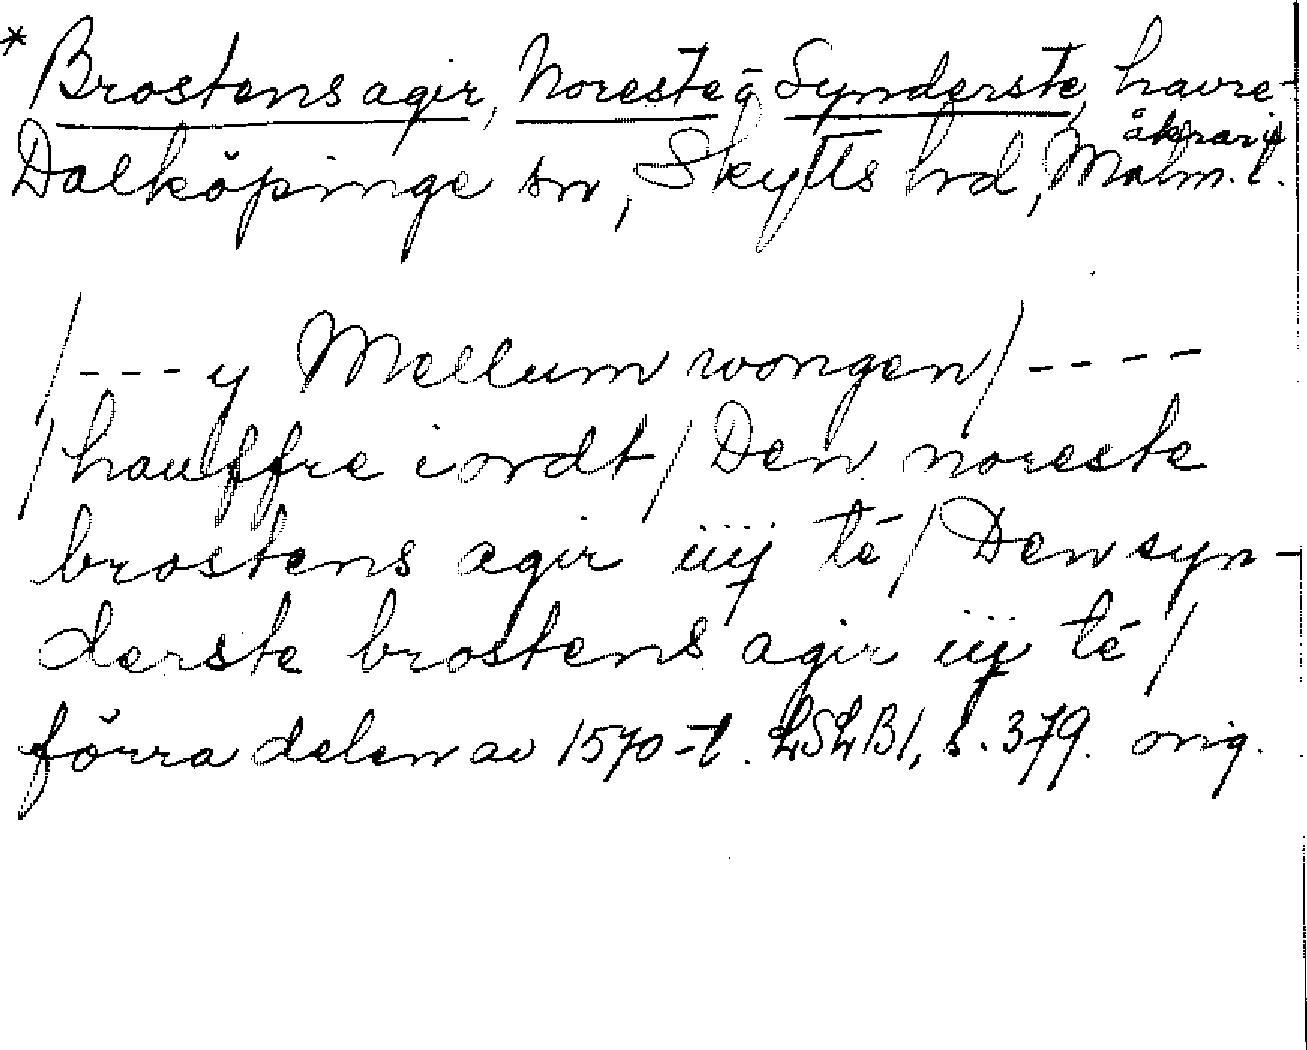 * Brostens agir, Noreste o Synderste, havre-
åkrar i
Dalköpinge sn, Skytts hd, Malm. l.
/---y Mellum wongen/----
/hauffre iordt/Den noreste
brostens agir iiij té/Den syn-
derste brostens agir iij té/
förra delen av 1570-t. LSLB1, s. 379. orig.